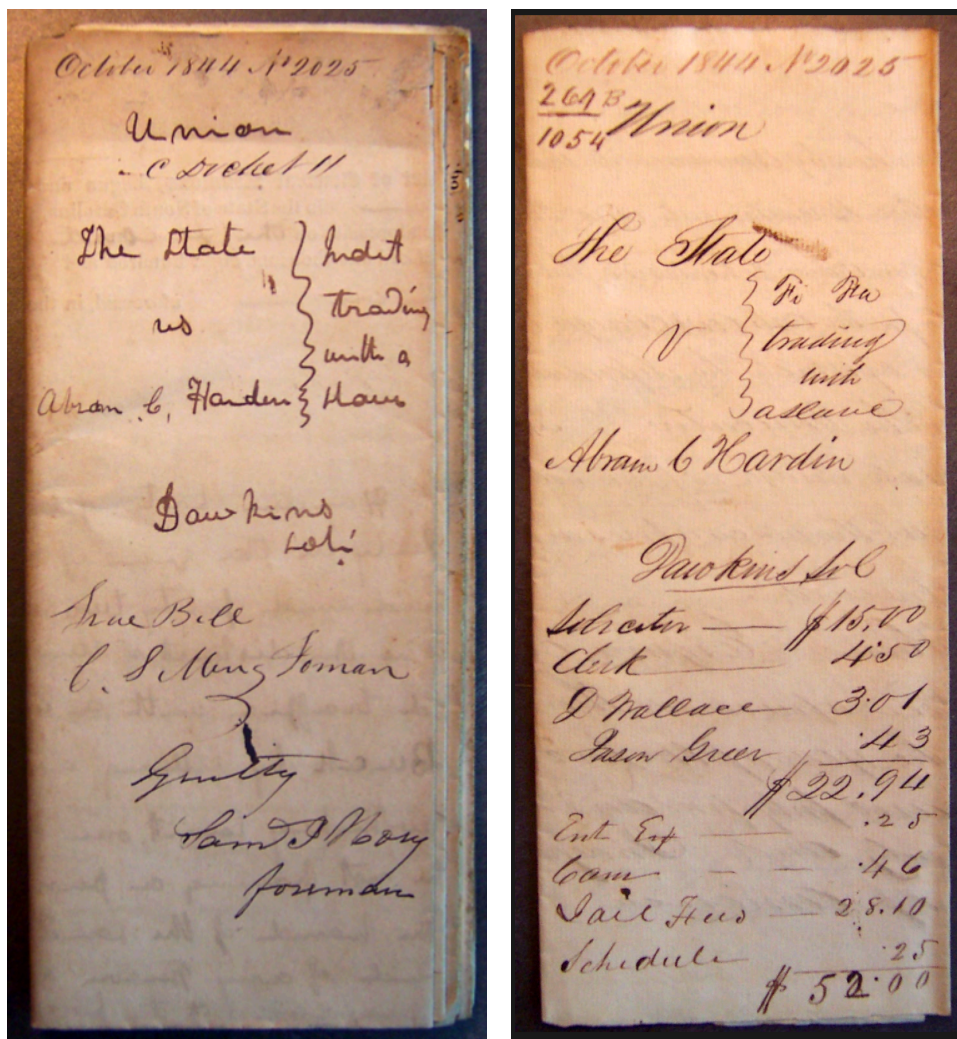 October 1844 No 2025
Union
C Docket 11
The State
vs
Abram C. Harden
Indct
trading
with a
Slave
Dawkins
Sol:
True Bill
C. S Meng Foman
Guilty
foreman
October 1844 No 2025
264 B
1054
Union
The State
V
Abram C Hardin
Fi Fa
trading
with
aslave
Dawkins Sol
Solicitor $15.00
Clerk 4.50
D Wallace 3.01
Jason Greer .43
$22.94
Ent Ex .25
Com .46
Jail Fees 28.10
Schedule .25
$52.00